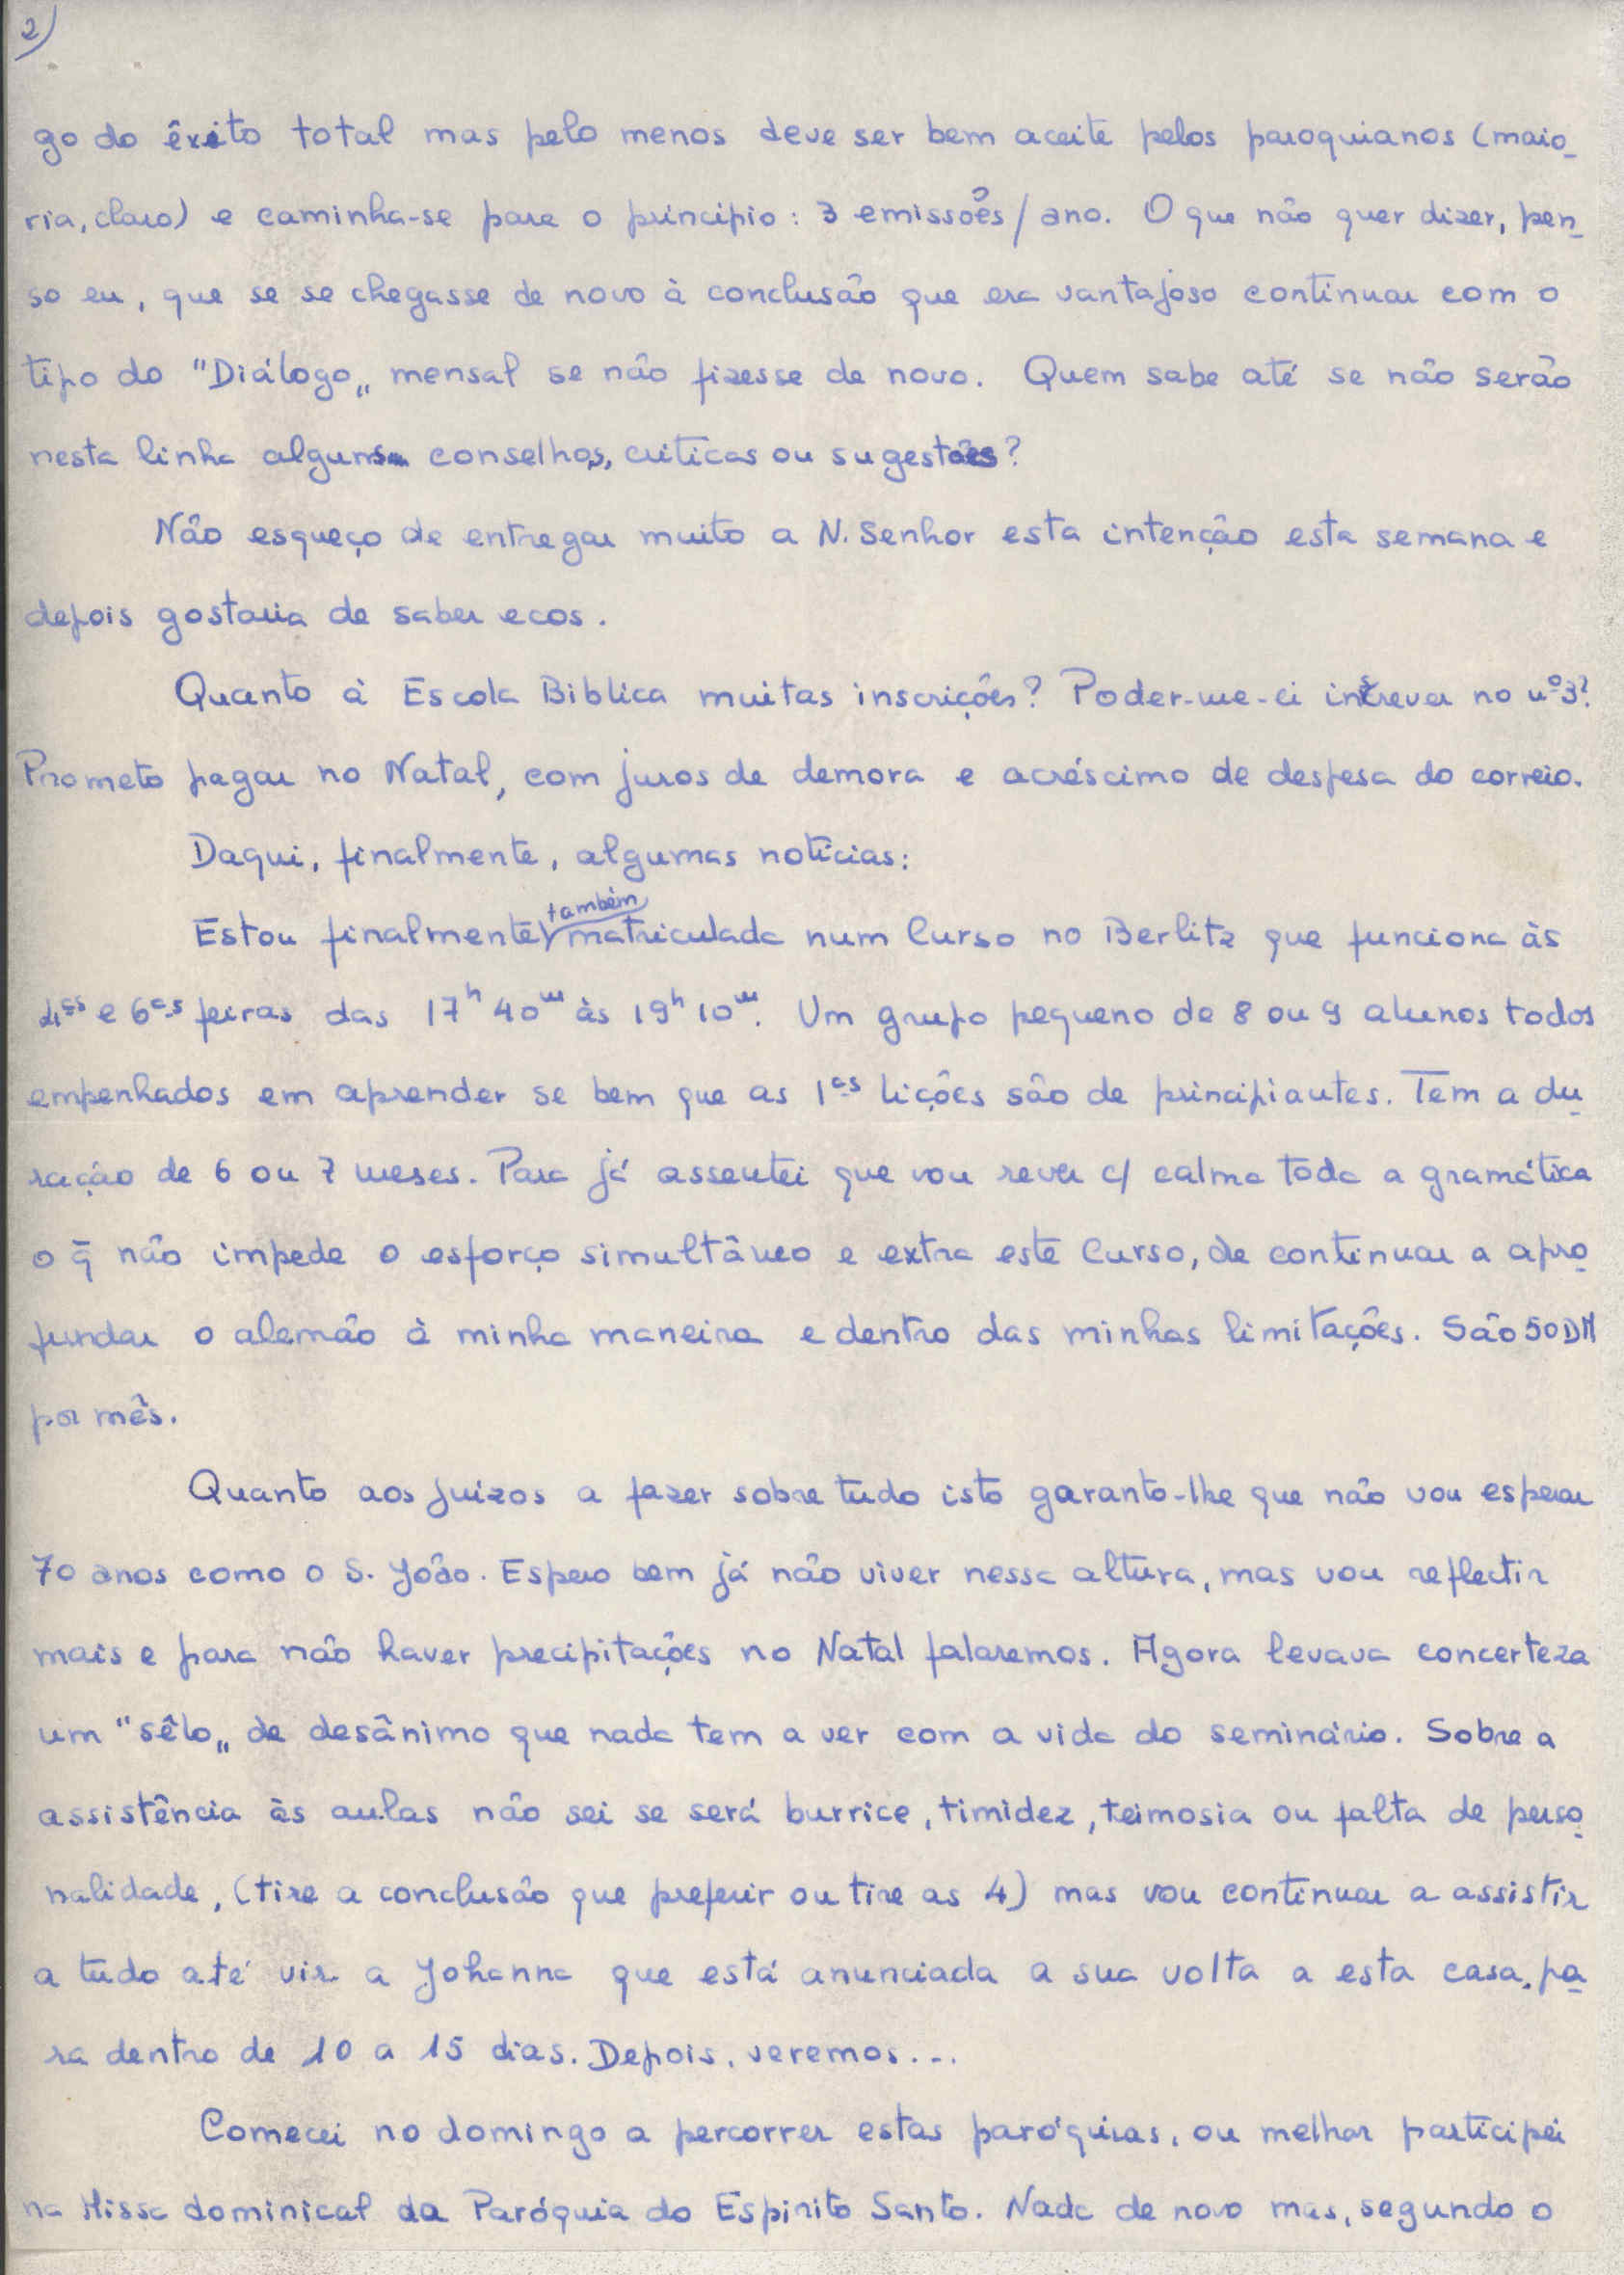 2)
go do êxito total mas pelo menos deve ser bem aceite pelos paroquianos (maio-
ria, claro) e caminha-se para o principio: 3 emissões/ano. O que não quer dizer, pen-
so eu, que se se chegasse de novo à conclusão que era vantajoso continuar com o
tipo do "Diálogo„ mensal se não fizesse de novo. Quem sabe até se não serão
nesta linha alguns conselhos, criticas ou sugestões?
Não esqueço de entregar muito a N. Senhor esta intenção esta semana e
depois gostaria de saber ecos.
Quanto à Escola Biblica muitas inscrições? Poder-me-ei inscrever no nº 3?
Prometo pagar no Natal, com juros de demora e acréscimo de despesa do correio.
Daqui, finalmente, algumas notícias:
Estou finalmente também matriculada num Curso no Berlitz que funciona às
4as e 6as feiras das 17h 40m às 19h 10m. Um grupo pequeno de 8 ou 9 alunos todos
empenhados em aprender se bem que as 1as lições são de principiantes. Tem a du-
ração de 6 ou 7 meses. Para já assentei que vou rever c/ calma toda a gramática
o q̄ não impede o esforço simultâneo e extra este Curso, de continuar a apro-
fundar o alemão à minha maneira e dentro das minhas limitações. São 50 DM
por mês.
Quanto aos juizos a fazer sobre tudo isto garanto-lhe que não vou esperar
70 anos como o S. João. Espero bem já não viver nessa altura, mas vou reflectir
mais e para não haver precipitações no Natal falaremos. Agora levava concerteza
um "sêlo„ de desânimo que nada tem a ver com a vida do seminário. Sobre a
assistência às aulas não sei se será burrice, timidez, teimosia ou falta de perso-
nalidade, (tire a conclusão que preferir ou tire as 4) mas vou continuar a assistir
a tudo até vir a Johanna que está anunciada a sua volta a esta casa, pa-
ra dentro de 10 a 15 dias. Depois, veremos...
Comecei no domingo a percorrer estas paróquias, ou melhor participei
na Missa dominical da Paróquia do Espirito Santo. Nada de novo mas, segundo o